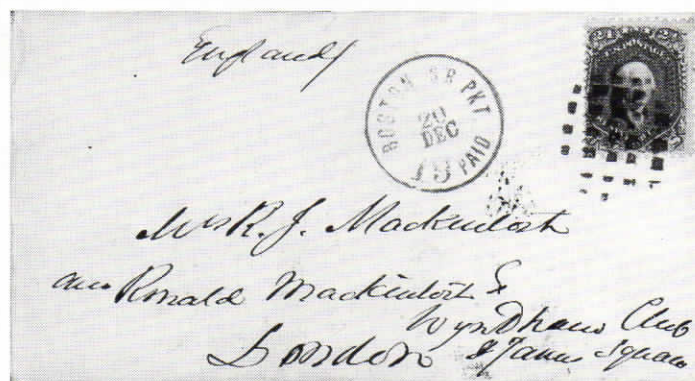 England
24 U.S. POSTAGE 24
BOSTON BR PKT
20
DEC
19 PAID
Mrs R. J. Mackintosh
Ronald Mackintosh
Wyndham Club
London St James Square